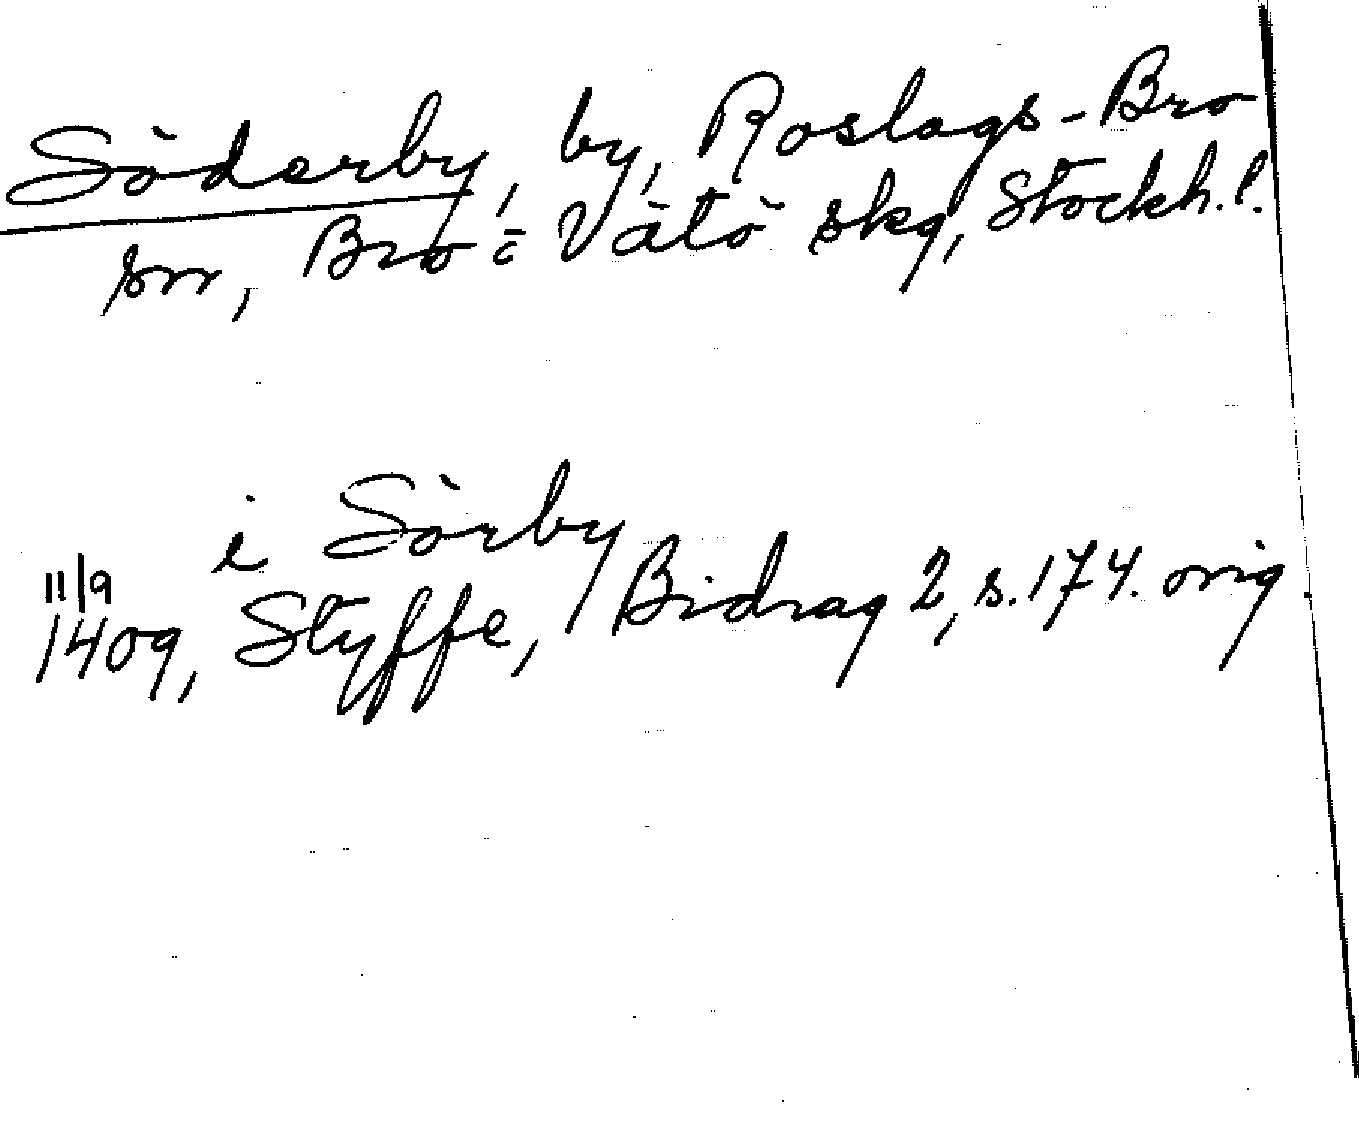 Söderby, by, Roslags-Bro
sn, Bro o Vätö skg, Stockh. l.
i Sörby
11/9
1409, Styffe, Bidrag 2, s. 174. orig.